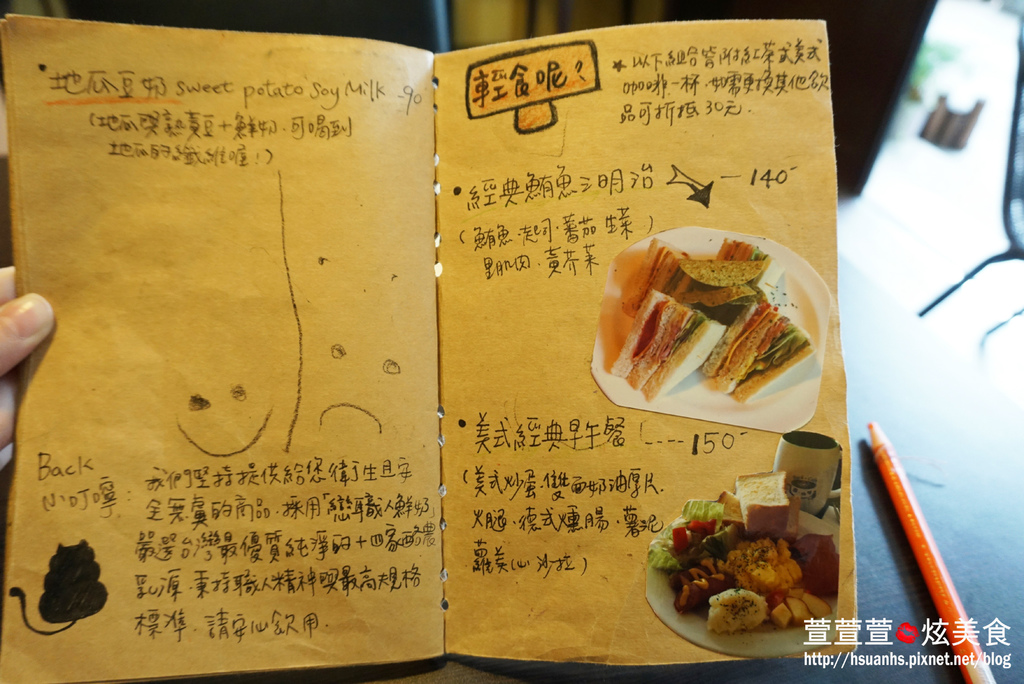 地瓜豆奶 sweet potato Soy Milk -90
(地瓜與熟黃豆+鮮奶.可喝到
地瓜的纖維喔!)
Back
小叮嚀:
我們堅持提供給您衛生且安
全無虞的商品.採用「戀職人鮮奶」
嚴選台灣最優質純淨的十四家酪農
乳源.秉持職人精神與最高規格
標準.請安心飲用.
輕食呢?
★以下組合皆附紅茶或美式
咖啡一杯.如需更換其他飲
品可折抵30元.
•經典鮪魚三明治 — 140-
(鮪魚.起司.番茄 生菜
里肌肉.黃芥菜)
•美式經典早午餐 ---- 150-
(美式炒蛋.雙面奶油厚片.
火腿.德式燻腸.薯泥
蘿美心沙拉)
萱萱萱 炫美食
http://hsuanhs.pixnet.net/blog